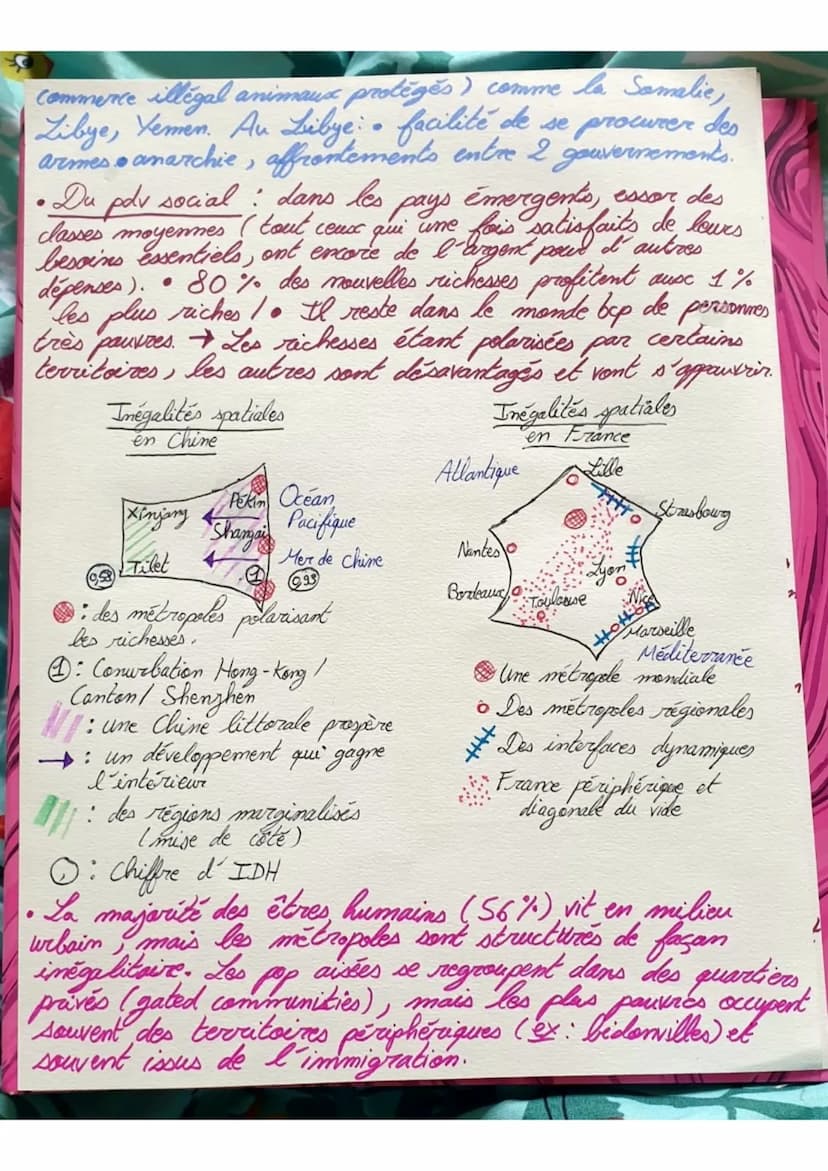 commerce illégal animaux protégés) comme la Somalie,
Libye, Yemen. Au Libye : • facilité de se procurer des
armes • anarchie, affrontements entre 2 gouvernements.
• Du pdv social : dans les pays émergents, essor des
classes moyennes (tout ceux qui une fois satisfaits de leurs
besoins essentiels, ont encore de l'argent pour d'autres
dépenses). • 80 % des nouvelles richesses profitent aux 1 %
les plus riches ! • Il reste dans le monde bcp de personnes
très pauvres. → Les richesses étant polarisées par certains
territoires, les autres sont désavantagés et vont s'appauvrir.
Inégalités spatiales
en Chine
Xinjang
Pékin
Océan
Pacifique
Shangai
Mer de Chine
Tilet
0,58
1
0,93
: des métropoles polarisant
les richesses.
1 : Conurbation Hong-Kong /
Canton / Shenzhen
: une Chine littorale prospère
→ : un développement qui gagne
l'intérieur
: des régions marginalisés
(mise de côté)
, : Chiffre d'IDH
Inégalités spatiales
en France
Atlantique
Lille
Strasbourg
Nantes
Lyon
Bordeaux
Toulouse
Nice
Marseille
Méditerranée
Une métropole mondiale
Des métropoles régionales
Des interfaces dynamiques
France périphérique et
diagonale du vide
• La majorité des êtres humains (56 %) vit en milieu
urbain, mais les métropoles sont structurés de façon
inégalitaire. Les pop aisées se regroupent dans des quartiers
privés (gated communities), mais les plus pauvres occupent
souvent des territoires périphériques (ex : bidonvilles) et
souvent issus de l'immigration.